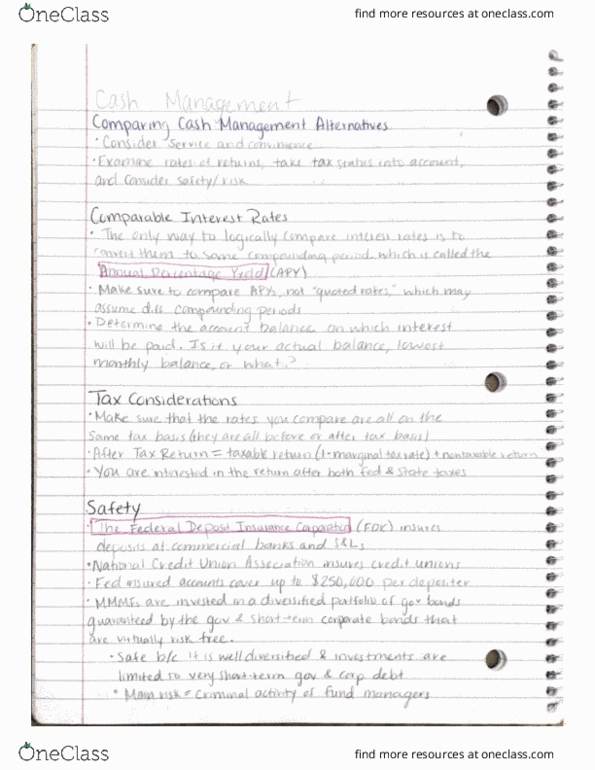 OneClass
find more resources at oneclass.com
Cash Management
Comparing Cash Management Alternatives
• Consider service and convinence
• Examine rates of returns, take tax status into account,
and consider safety/risk
Comparable Interest Rates
• The only way to logically compare interest rates is to
convert them to same compounding period. which is called the
Annual Percentage Yield (APY)
• Make sure to compare APYs, not "quoted rates," which may
assume diff compounding periods
• Determine the account balance on which interest
will be paid. Is it your actual balance, lowest
monthly balance, or what?
Tax Considerations
• Make sure that the rates you compare are all on the
same tax basis (they are all before or after tax basis)
• After Tax Return = taxable return (1-marginal tax rate) + nontaxable return
• You are interested in the return after both fed & state taxes
Safety
• The Federal Deposit Insurance Corporation (FDIC) insures
deposits at commercial banks and S&Ls
• National Credit Union Association insures credit unions
• Fed insured accounts cover up to $250,000 per depositer
• MMMFs are invested in a diversified portfolio of gov bonds
guaranteed by the gov & short-term corporate bonds that
are virtually risk free.
• Safe b/c it is well diversified & investments are
limited to very short-term gov & corp debt
• Main risk = criminal activity of fund managers
OneClass
find more resources at oneclass.com